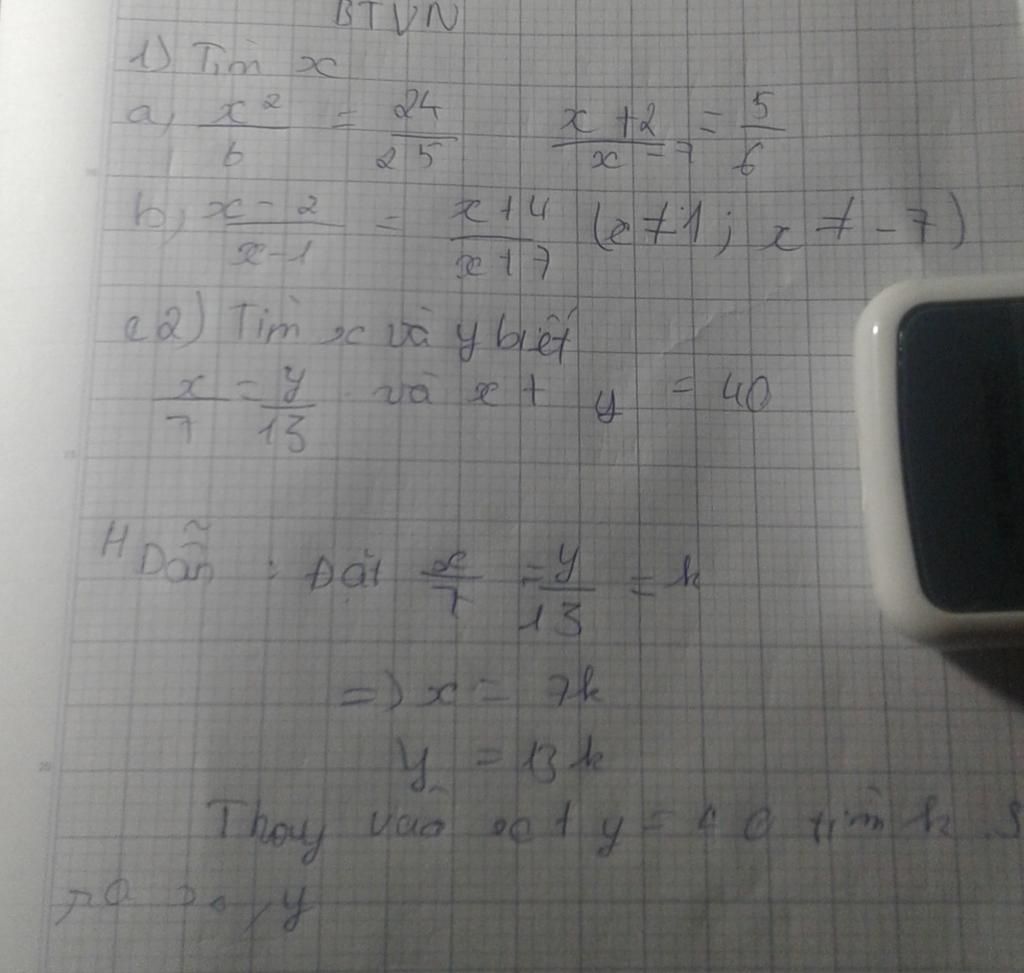 BTVN
1) Tìm x
a, x²/6 = 24/25 (x + 2)/(x - 7) = 5/6
b, (x - 2)/(x - 1) = (x + 4)/(x + 7) (x ≠ 1; x ≠ - 7)
c 2) Tìm x và y biết
x/7 = y/13 và x + y = 40
H Dẫn : Đặt x/7 = y/13 = k
=> x = 7k
y = 13k
Thay vào x + y = 40 tìm k
y